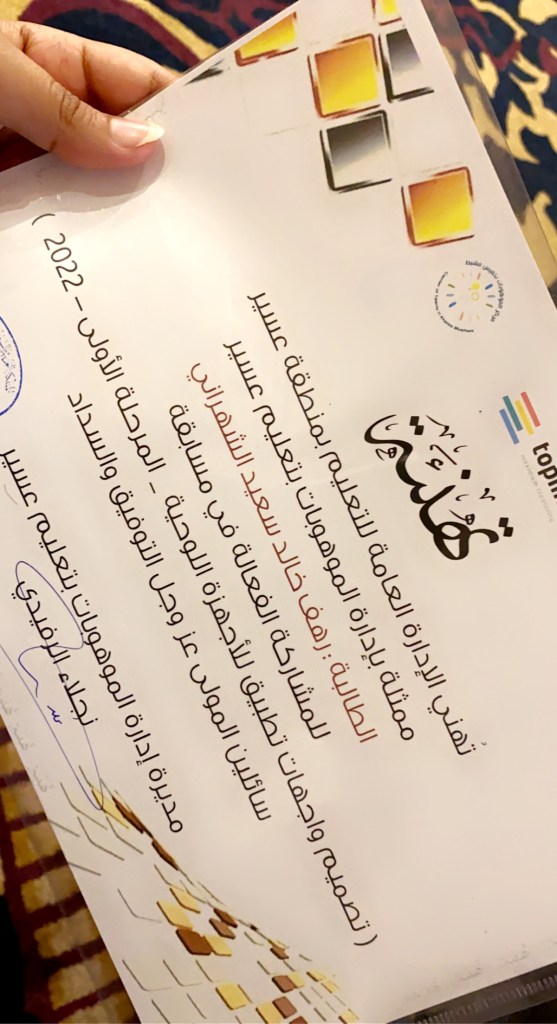 topm
تهنئة
تُهني الإدارة العامة للتعليم بمنطقة عسير
ممثلة بإدارة الموهوبات بتعليم عسير
الطالبة : رهف خالد سعيد الشهراني
للمشاركة الفعالة في مسابقة
( تصميم واجهات تطبيق للأجهزة اللوحية - المرحلة الأولى – 2022 )
سائلين المولى عز وجل التوفيق والسداد
مديرة إدارة الموهوبات بتعليم عسير
نجلاء الرفيدي